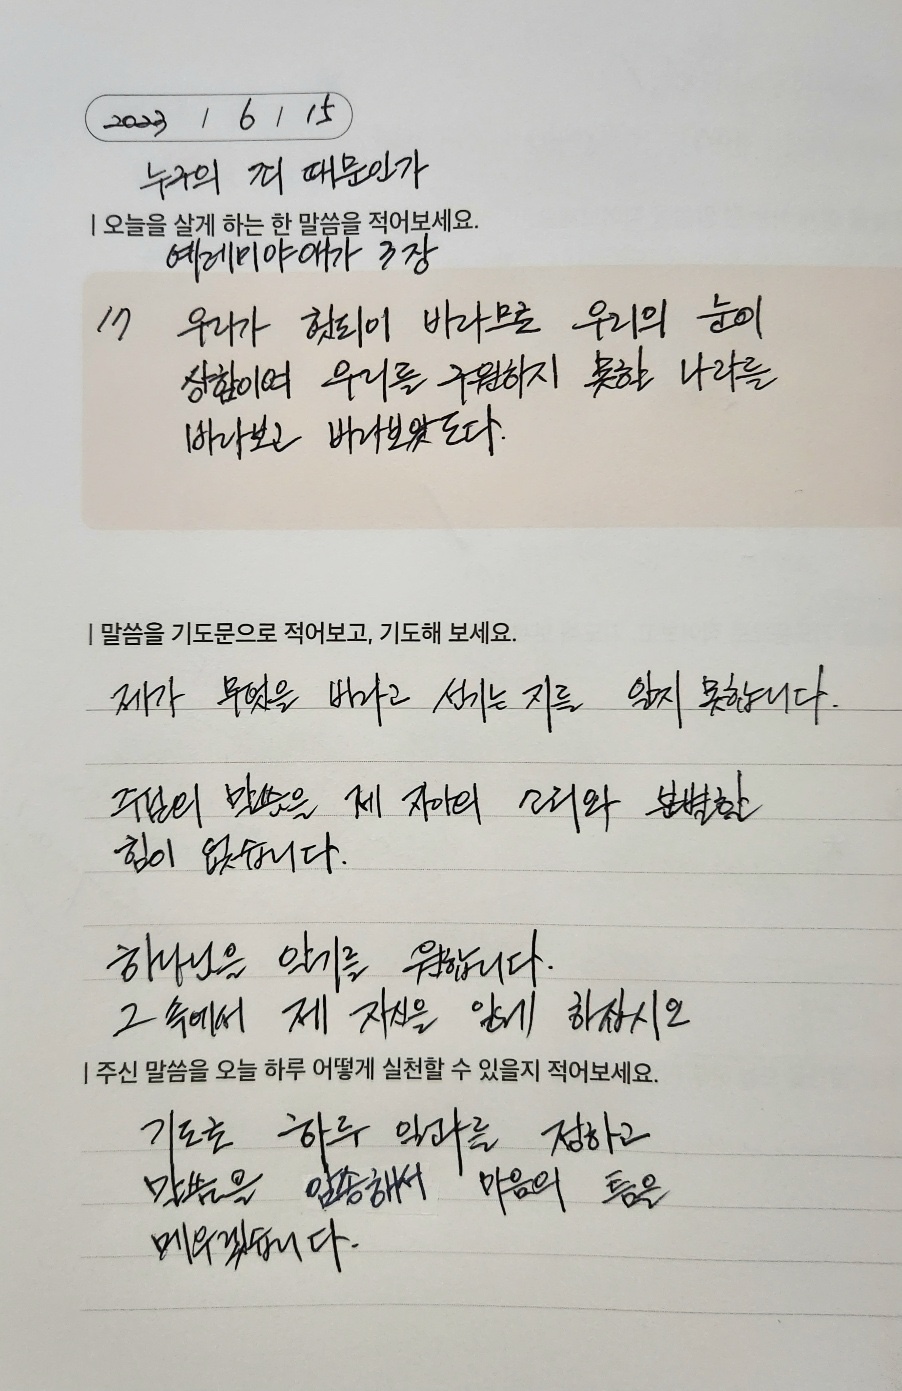 2023 / 6 / 15
누구의 죄 때문인가
| 오늘을 살게 하는 한 말씀을 적어보세요.
예레미야애가 3장
17 우리가 헛되이 바라므로 우리의 눈이
상함이여 우리를 구원하지 못할 나라를
바라보고 바라보았도다.
| 말씀을 기도문으로 적어보고, 기도해 보세요.
제가 무엇을 바라고 섬기는 지를 알지 못합니다.
주님의 말씀을 제 자아의 소리와 분별할
힘이 없습니다.
하나님을 알기를 원합니다.
그 속에서 제 자신을 알게 하잡시오
| 주신 말씀을 오늘 하루 어떻게 실천할 수 있을지 적어보세요.
기도로 하루 일과를 정하고
말씀을 암송해서 마음의 틈을
메우겠습니다.